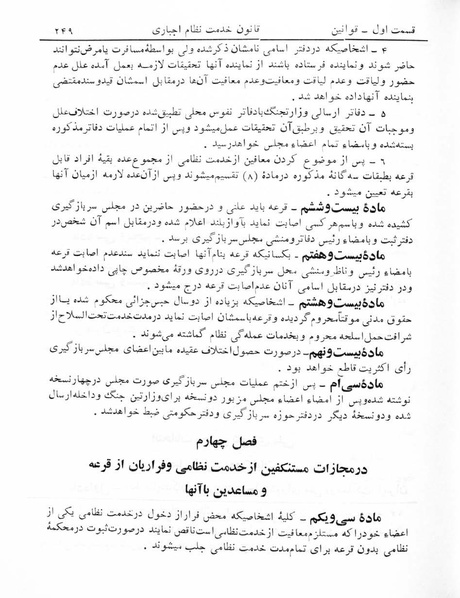 قسمت اول ـ قوانین قانون خدمت نظام اجباری ۲۴۹
۴ ـ اشخاصیکه دردفتر اسامی نامشان ذکرشده ولی بواسطهٔ مسافرت یامرض نتوانند
حاضر شوند ونماینده فرستاده باشند از نماینده آنها تحقیقات لازمه بعمل آمده علل عدم
حضور ولیاقت وعدم لیاقت ومعافیت وعدم معافیت آن‌ها درمقابل اسمشان قیدوسندمقتضی
بنماینده آنهاداده خواهد شد .
۵ ـ دفاتر ارسالی وزارتجنگ بادفاتر نفوس محلی تطبیق‌شده درصورت اختلاف علل
وموجبات آن تحقیق وبرطبق آن تحقیقات عمل‌میشود وپس از اتمام عملیات دفاترمذکوره
بسته‌شده وبامضاء تمام اعضاء مجلس خواهدرسید .
۶ ـ پس از موضوع کردن معافین ازخدمت نظامی از مجموع‌عده بقیهٔ افراد قابل
قرعه بطبقات سه‌گانهٔ مذکوره درمادهٔ (۸) تقسیم‌میشوند وپس ازآن‌عده لازمه ازمیان آنها
بقرعه تعیین میشود .
مادهٔ بیست‌وششم ـ قرعه باید علنی و درحضور حاضرین در مجلس سربازگیری
کشیده شده وباسم‌هرکسی اصابت نماید باآوازبلند اعلام شده ودرمقابل اسم آن شخص‌در
دفترثبت وبامضاء رئیس دفاترومنشی مجلس‌سربازگیری برسد .
مادهٔ بیست‌وهفتم ـ بکسانیکه قرعه بنام‌آنها اصابت ننماید سندعدم اصابت قرعه
بامضاء رئیس وناظرومنشی محل سربازگیری درروی ورقهٔ مخصوص چاپی داده‌خواهدشد
ودر دفترنیز درمقابل اسامی آنان عدم‌اصابت قرعه درج میشود .
مادهٔ بیست‌وهشتم ـ اشخاصیکه بزیاده از دوسال حبس‌جزائی محکوم شده یااز
حقوق مدنی موقتاًمحروم گردیده وقرعه‌باسمشان اصابت نماید درمدت‌خدمت‌تحت‌السلاح از
شرافت‌حمل‌اسلحه محروم وبخدمات عمله‌گی نظام گماشته می‌شوند .
مادهٔ بیست‌ونهم ـ درصورت حصول‌اختلاف عقیده مابین‌اعضای مجلس‌سربازگیری
رأی اکثریت قاطع خواهد بود .
مادهٔ سی‌اُم ـ پس ازختم عملیات مجلس سربازگیری صورت مجلس درچهارنسخه
نوشته شده‌وپس از امضاء اعضاء مجلس مزبور دونسخه برای‌وزارتین جنگ وداخله‌ارسال
شده ودونسخهٔ دیگر دردفترحوزه سربازگیری ودفترحکومتی ضبط خواهدشد .
فصل چهارم
درمجازات مستنکفین ازخدمت نظامی وفراریان از قرعه
و مساعدین باآنها
مادهٔ سی‌ویکم ـ کلیهٔ اشخاصیکه محض فراراز دخول درخدمت نظامی یکی از
اعضاء خودراکه مستلزم‌معافیت ازخدمت‌نظامی‌است‌ناقص نمایند درصورت‌ثبوت درمحکمهٔ
نظامی بدون قرعه برای تمام‌مدت خدمت نظامی جلب میشوند .